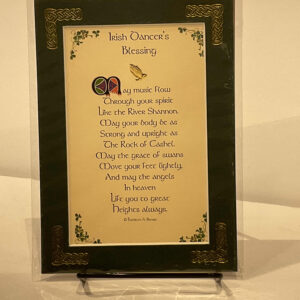 Irish Dancer's
Blessing
May music flow
Through your spirit
Like the River Shannon.
May your body be as
Strong and upright as
The Rock of Cashel.
May the grace of swans
Move your feet lightly,
And may the angels
In heaven
Life you to great
Heights always.